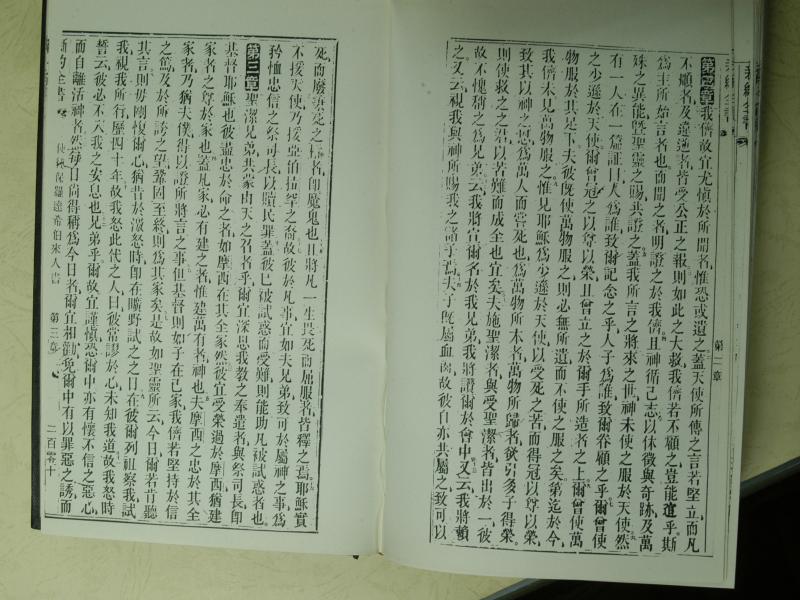 第二章我儕故宜尤愼於所聞者惟恐或遺之蓋天使所傳之言若堅立而凡
不順者及違逆者皆受公正之報則如此之大救我儕若不顧之豈能逭乎斯
爲主所始言者也而聞之者明證之於我儕且神循己志以休徵與奇跡及萬
殊之異能曁聖靈之賜共證之蓋我所言之將來之世神未使之服於天使然
有一人在一篇証曰人爲誰致爾記念之乎人子爲誰致爾眷顧之乎爾曾使
之少遜於天使爾曾冠之以尊以榮且曾立之於爾手所造者之上爾曾使萬
物服於其足下夫彼旣使萬物服之則必無所遺而不使之服之矣第迄於今
我儕未見萬物服之惟見耶穌爲少遜於天使以受死之苦而得冠以尊以榮
致其以神之恩爲萬人而嘗死也爲萬物所本者萬物所歸者欲引多子得榮
則使救之之君以若難而成全也宜矣夫施聖潔者與受聖潔者皆出於一彼
故不愧稱之爲兄弟云我將宣爾名於我兄弟我將讚爾於會中又云我將賴
之又云視我與神所賜我之諸子焉夫子旣屬血肉故彼自亦共屬之致可以
第二章
死而廢操死之權者卽魔鬼也且將凡一生畏死而屈服者皆釋之焉耶穌實
不援天使乃援亞伯拉罕之裔故彼於凡事宜如夫兄弟致可於屬神之事爲
矜恤忠信之祭司長以贖民罪蓋彼已被試惑而受難則能助凡被試惑者也
第三章聖潔兄弟共蒙由天之召者乎爾宜深思我敎之奉遣者與祭司長卽
基督耶穌也彼盡忠於命之者如摩西在其全家然彼宜受榮過於摩西猶建
家者之尊於家也蓋凡家必有建之者惟建萬有者神也夫摩西之忠於其全
家者乃猶夫僕得以證所將言之事但基督則如子在己家我儕若堅持於信
之篤及於所誇之望鞏固至終則爲其家矣是故如聖靈所云今日爾若肯聽
其言則毋剛愎爾心猶昔於激怒時卽在曠野試之之日在彼爾列祖察我試
我視我所行歷四十年故我怒此代之人曰彼常謬於心未知我道故我怒時
誓云彼必不入我之安息也兄弟乎爾故宜謹愼恐爾中亦有懷不信之惡心
而自離活神者然每日尚得稱爲今日者爾宜相勸免爾中有以罪惡之誘而
新約全書
使徒保羅達希伯來人書
第三章
二百零十